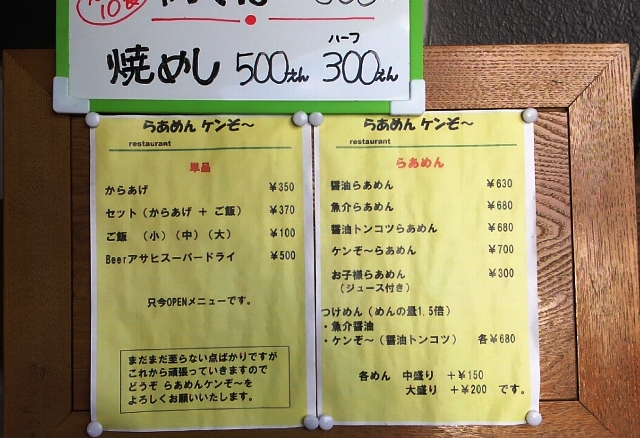 10食
焼めし 500えん ハーフ 300えん
らあめん ケンぞ～
restaurant
単品
からあげ ¥350
セット（からあげ ＋ ご飯） ¥370
ご飯 （小）（中）（大） ¥100
Beerアサヒスーパードライ ¥500
只今OPENメニューです。
まだまだ至らない点ばかりですが
これから頑張っていきますので
どうぞ らあめんケンぞ～を
よろしくお願いいたします。
らあめん ケンぞ～
restaurant
らあめん
醤油らあめん ¥630
魚介らあめん ¥680
醤油トンコツらあめん ¥680
ケンぞ～らあめん ¥700
お子様らあめん ¥300
（ジュース付き）
つけめん（めんの量1.5倍）
・魚介醤油
・ケンぞ～（醤油トンコツ） 各¥680
各めん 中盛り ＋¥150
大盛り ＋¥200 です。